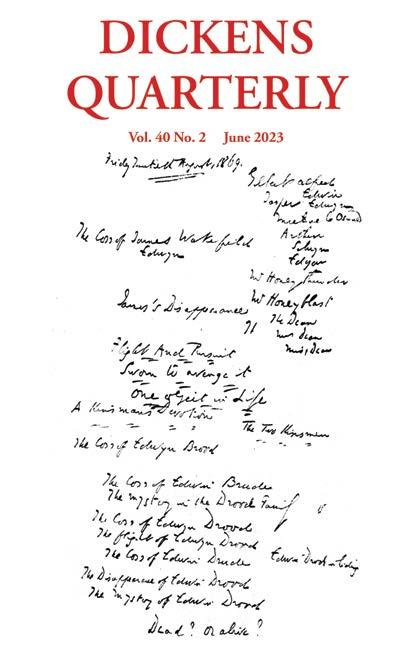 DICKENS
QUARTERLY
Vol. 40 No. 2 June 2023
Friday Twentieth August, 1869.
Gilbert Alfred
Edwin
Jasper Edwyn
Michael Oswald
The Loss of James Wakefield
Arthur
Edwyn
Selwyn
Edgar
Mr Honeythunder
Mr Honeyblast
James's Disappearance
The Dean
Mrs Dean
Miss Dean
Flight And Pursuit
Sworn to avenge it
One Object in Life
A Kinsman's Devotion
The Two Kinsmen
The Loss of Edwyn Brood
The Loss of Edwin Brude
The Mystery in the Drood Family
The Loss of Edwyn Drood
The flight of Edwyn Drood
Edwin Drood in hiding
The Loss of Edwin Drude
The Disappearance of Edwin Drood
The Mystery of Edwin Drood
Dead? Or alive?